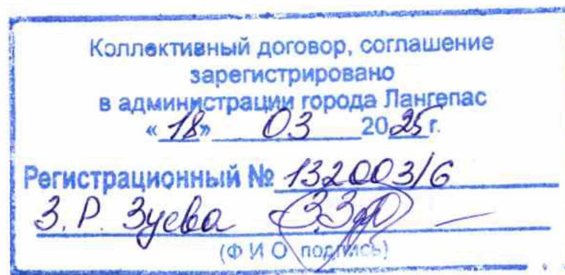 Коллективный договор, соглашение
зарегистрировано
в администрации города Лангепас
«18» 03 2025г.
Регистрационный № 132003/6
З. Р. Зуева
(Ф И О подпись)